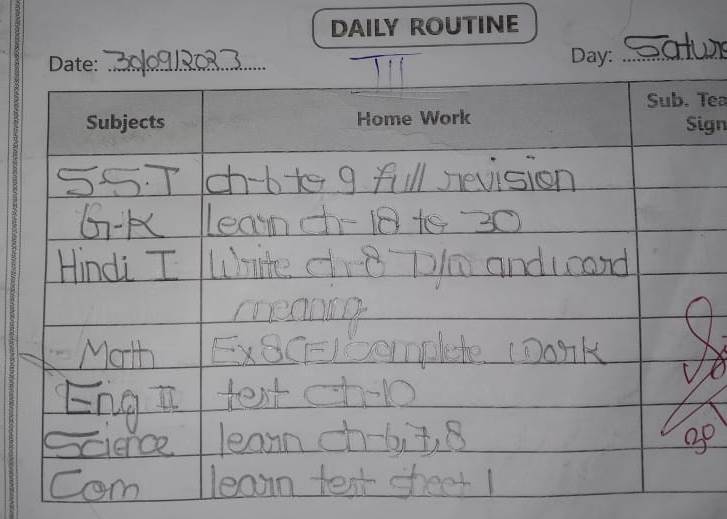 DAILY ROUTINE
Date: 30/09/2023 Day: Satur
III
Subjects Home Work Sub. Tea
Sign
S.S.T ch-6 to 9 full revision
G-K learn ch-18 to 30
Hindi I Write ch-8 D/Q and word
meaning
Math Ex 8(E) complete work
Eng II test ch-10
Science learn ch-6,7,8
Com learn test sheet 1
30